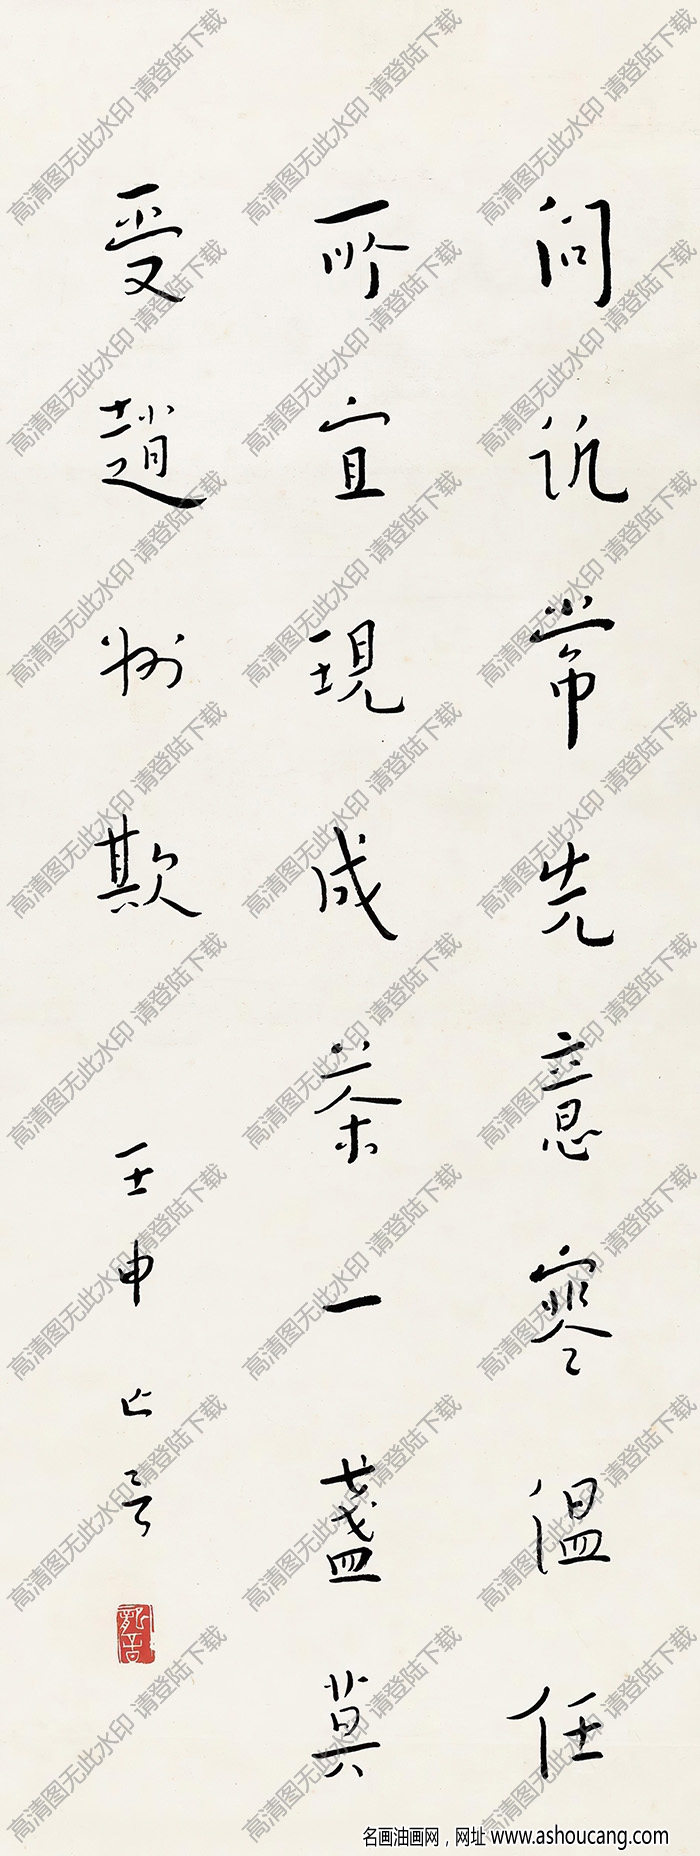 問訊常先意寒温任
所宜現成茶一盞莫
受趙州欺
壬申亡言
龍音
高清图无此水印 请登陆下载
名画油画网，网址 www.ashoucang.com